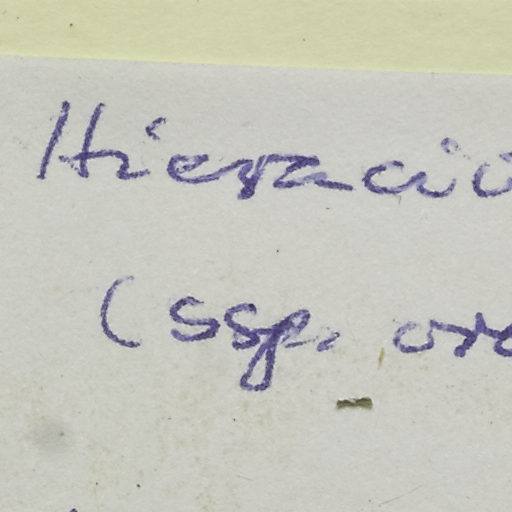 Hieraciu
(ssp. ore